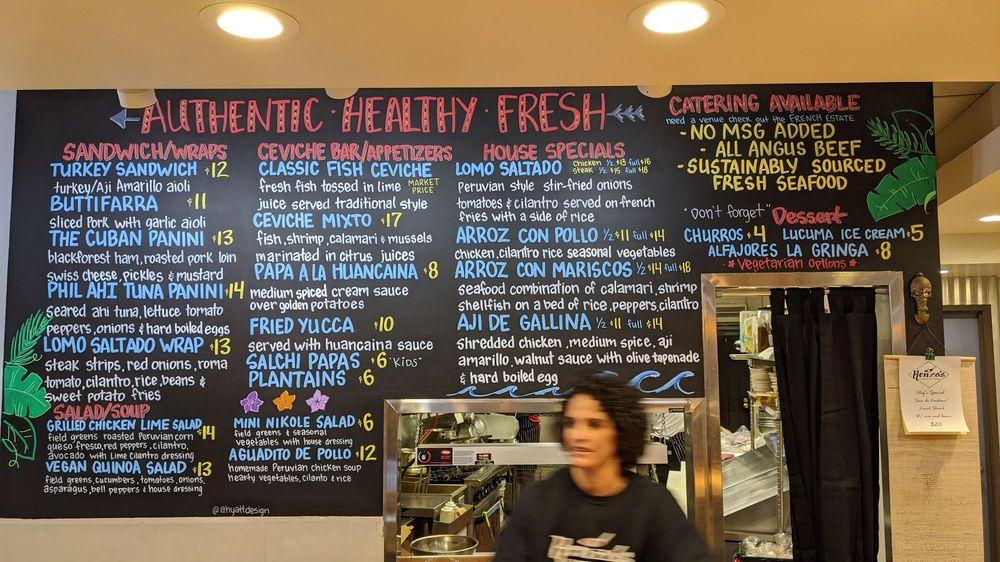 AUTHENTIC · HEALTHY · FRESH
SANDWICH/WRAPS
TURKEY SANDWICH $12
turkey/Aji Amarillo aioli
BUTTIFARRA $11
sliced Pork with garlic aioli
THE CUBAN PANINI $13
blackforest ham, roasted pork loin
swiss cheese, pickles & mustard
PHIL AHI TUNA PANINI $14
seared ahi tuna, lettuce tomato
peppers, onions & hard boiled eggs
LOMO SALTADO WRAP $13
steak strips, red onions, roma
tomato, cilantro, rice, beans &
sweet potato fries
SALAD/SOUP
GRILLED CHICKEN LIME SALAD $14
field greens roasted Peruvian corn
queso fresco, red peppers, cilantro,
avocado with Lime Cilantro dressing
VEGAN QUINOA SALAD $13
field greens, cucumbers, tomatoes, onions,
asparagus, bell peppers & house dressing
CEVICHE BAR/APPETIZERS
CLASSIC FISH CEVICHE
fresh fish tossed in lime MARKET PRICE
juice served traditional style
CEVICHE MIXTO $17
fish, shrimp, calamari & mussels
marinated in citrus juices
PAPA A LA HUANCAINA $8
medium spiced cream sauce
over golden potatoes
FRIED YUCCA $10
served with huancaina sauce
SALCHI PAPAS $6 "KIDS"
PLANTAINS $6
MINI NIKOLE SALAD $6
field greens & seasonal
vegetables with house dressing
AGUADITO DE POLLO $12
homemade Peruvian chicken soup
hearty vegetables, cilanto & rice
@ahyattdesign
HOUSE SPECIALS
LOMO SALTADO chicken ½ $13 full $16
steak ½ $15 full $18
Peruvian style stir-fried onions
tomatoes & cilantro served on french
fries with a side of rice
ARROZ CON POLLO ½ $11 full $14
chicken, cilantro rice seasonal vegetables
ARROZ CON MARISCOS ½ $14 full $18
seafood combination of calamari, shrimp
shellfish on a bed of rice, peppers, cilantro
AJI DE GALLINA ½ $11 full $14
shredded chicken, medium spice, aji
amarillo, walnut sauce with olive tapenade
& hard boiled egg
CATERING AVAILABLE
need a venue check out the FRENCH ESTATE
- NO MSG ADDED
- ALL ANGUS BEEF
- SUSTAINABLY SOURCED
FRESH SEAFOOD
"Don't forget" Dessert
CHURROS $4 LUCUMA ICE CREAM $5
ALFAJORES LA GRINGA $8
* Vegetarian Options *
Renzo's
$20